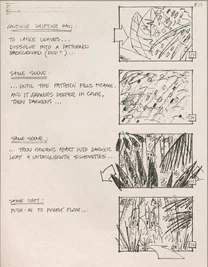 CONTINUE DRIFTING PAN:
TO LARGE LEAVES...
DISSOLVE INTO A PATTERNED
BACKGROUND
SAME SCENE:
... UNTIL THE PATTERN FILLS FRAME.
AND IT GROWS DEEPER IN COLOR,
THEN DARKENS...
SAME SCENE:
... THEN BREAKS APART INTO DARKER
LEAF & UNDERGROWTH SILHOUETTES...
SAME SHOT:
PUSH-IN TO FOREST FLOOR...